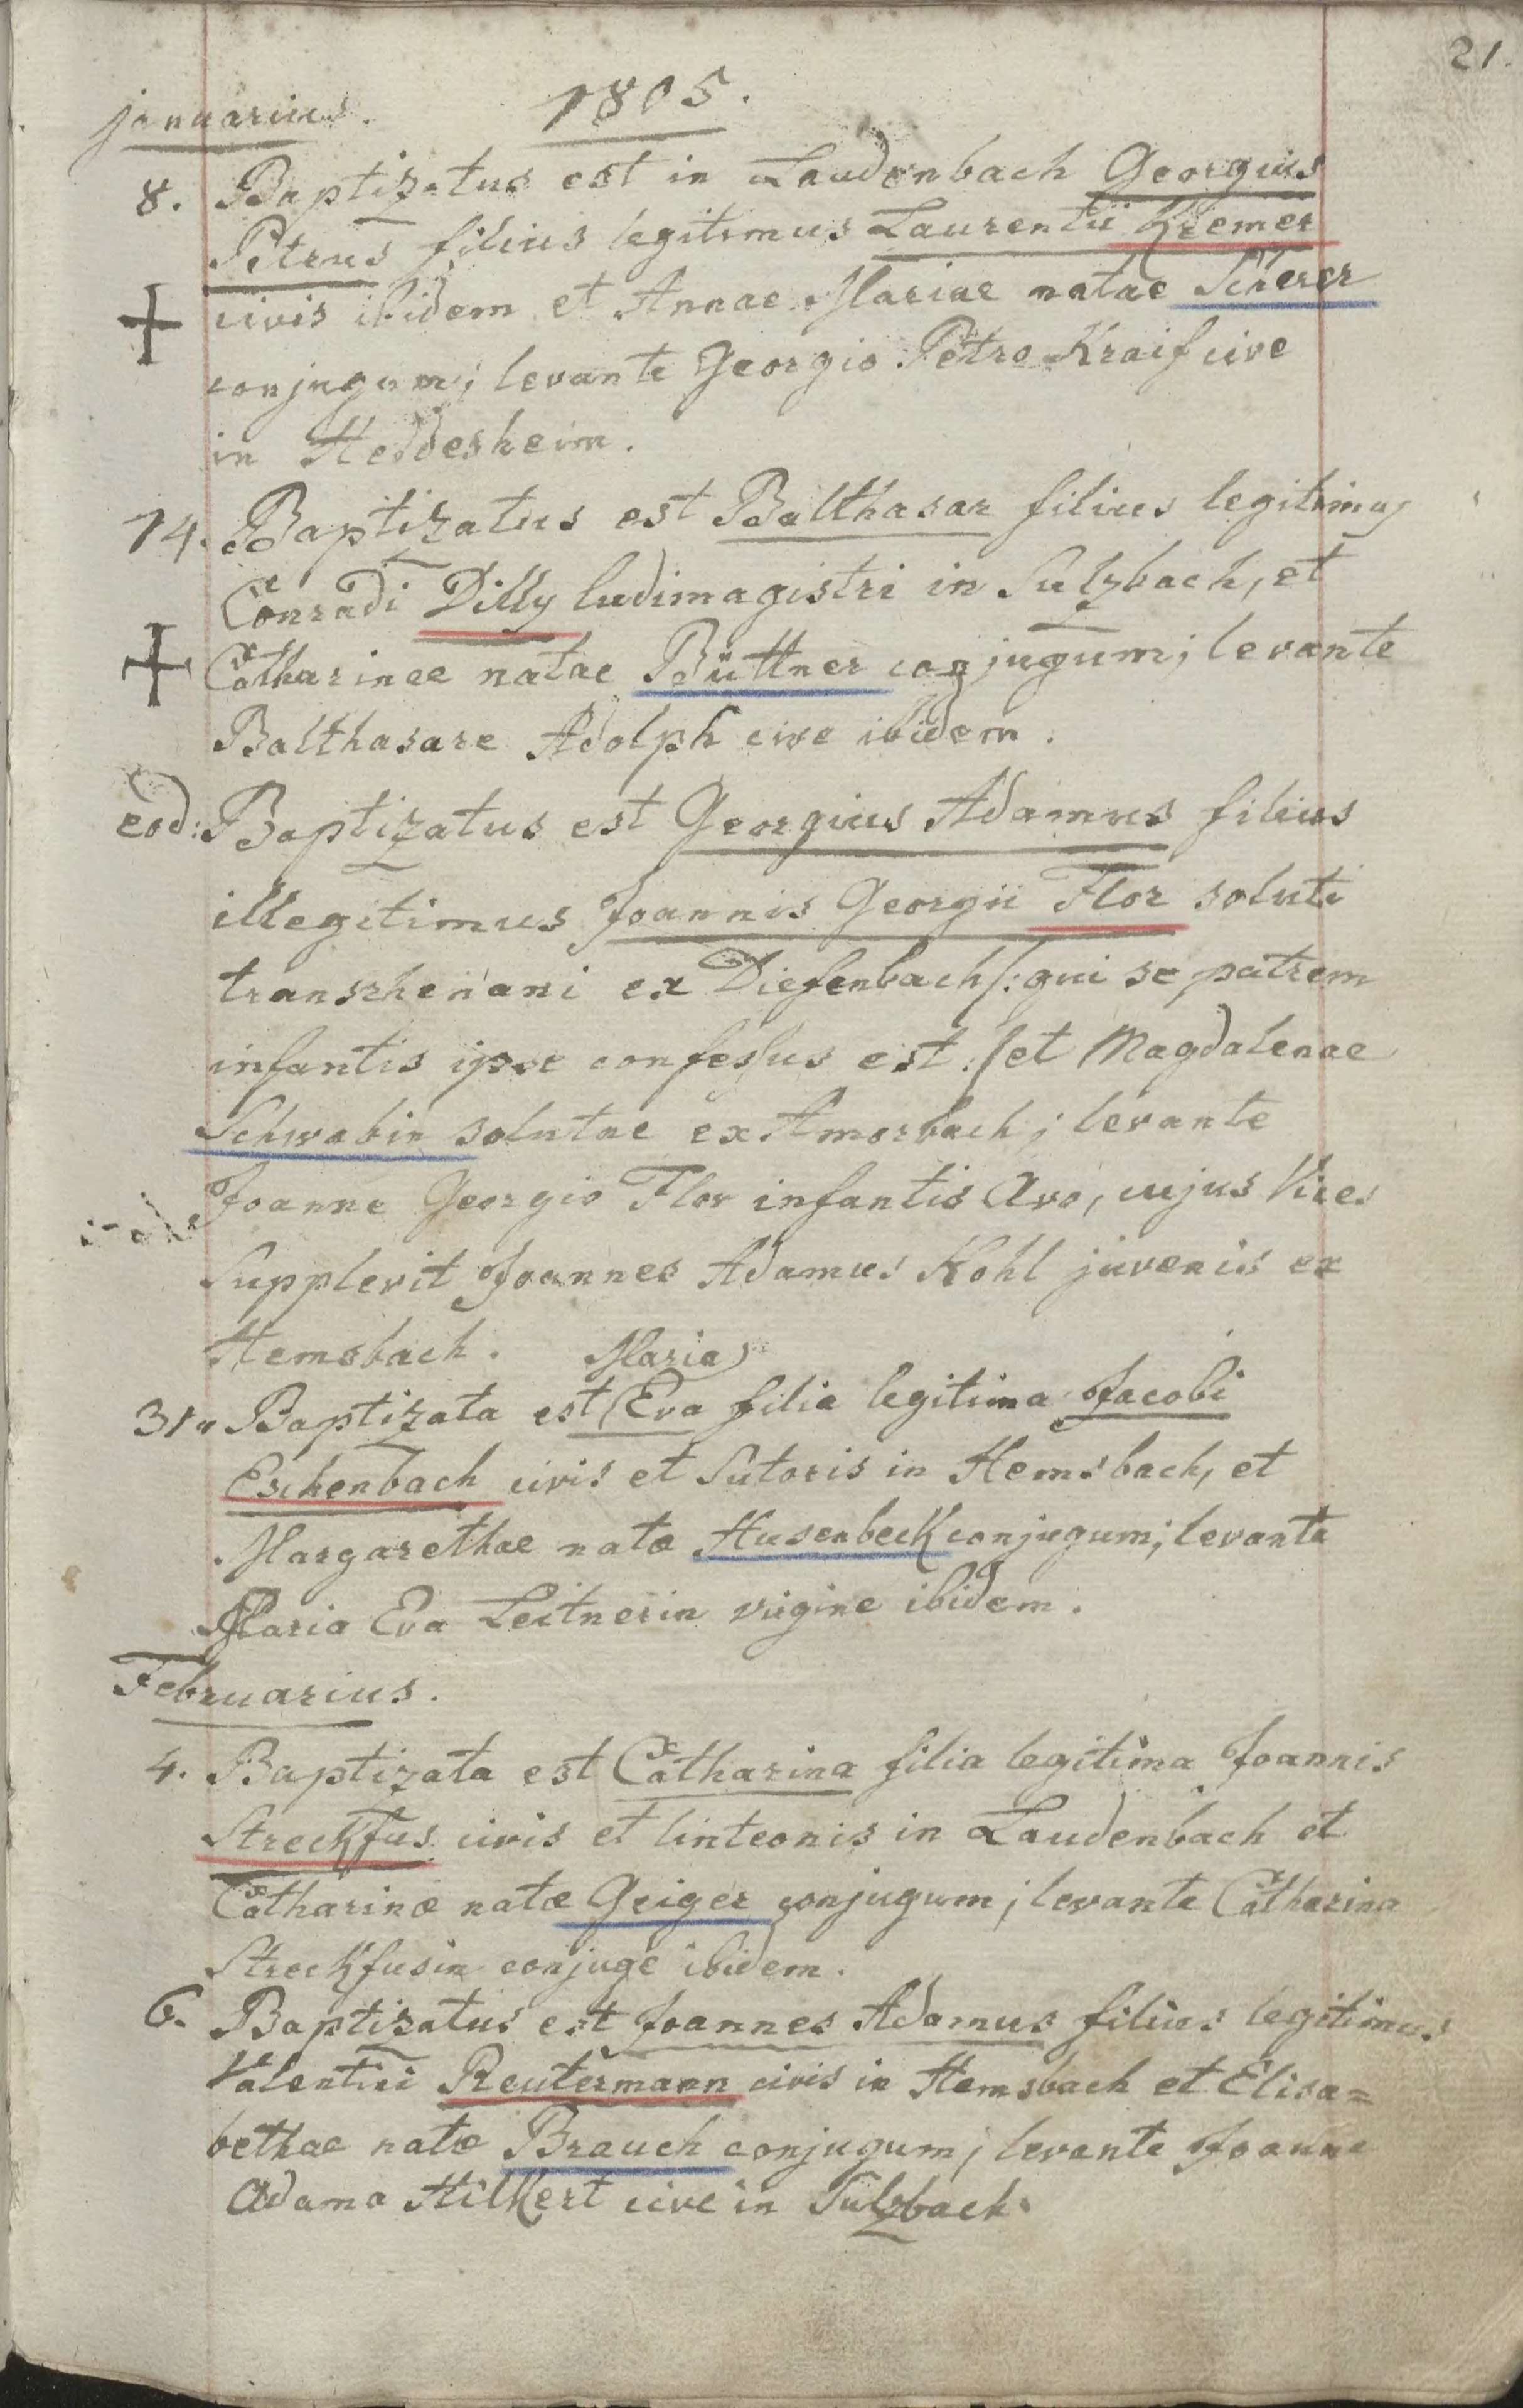 21.
januarius. 1805.
8. Baptizatus est in Laudenbach Georgius
Petrus filius legitimus Laurentii Kremer
civis ibidem et Annae Mariae natae Scherer
conjugum; levante Georgio Petro Kraif cive
in Heddesheim.
14. Baptizatus est Balthasar filius legitimus
Conradi Dilly ludimagistri in Sulzbach, et
Catharinae natae Büttner conjugum; levante
Balthasare Adolph cive ibidem.
eod: Baptizatus est Georgius Adamus filius
illegitimus Joannis Georgii Flor soluti
transrhenani ex Diefenbach /: qui se patrem
infantis ipse confessus est :/ et Magdalenae
Schwabin solutae ex Amorbach; levante
Joanne Georgio Flor infantis Avo, cujus Vices
Supplevit Joannes Adamus Kohl juvenis ex
Hemsbach. Maria
31. Baptizata est Eva filia legitima Jacobi
Eschenbach civis et Sutoris in Hemsbach, et
Margarethae natæ Husenbeck conjugum; levante
Maria Eva Leitnerin virgine ibidem.
Februarius.
4. Baptizata est Catharina filia legitima Joannis
Streckfus civis et linteonis in Laudenbach et
Catharinæ natæ Geiger conjugum; levante Catharina
Streckfusin conjuge ibidem.
6. Baptisatus est Joannes Adamus filius legitimus
Valentini Reutermann civis in Hemsbach et Elisa=
bethae natæ Brauch conjugum; levante Joanne
Adamo Hilkert cive in Sulzbach.